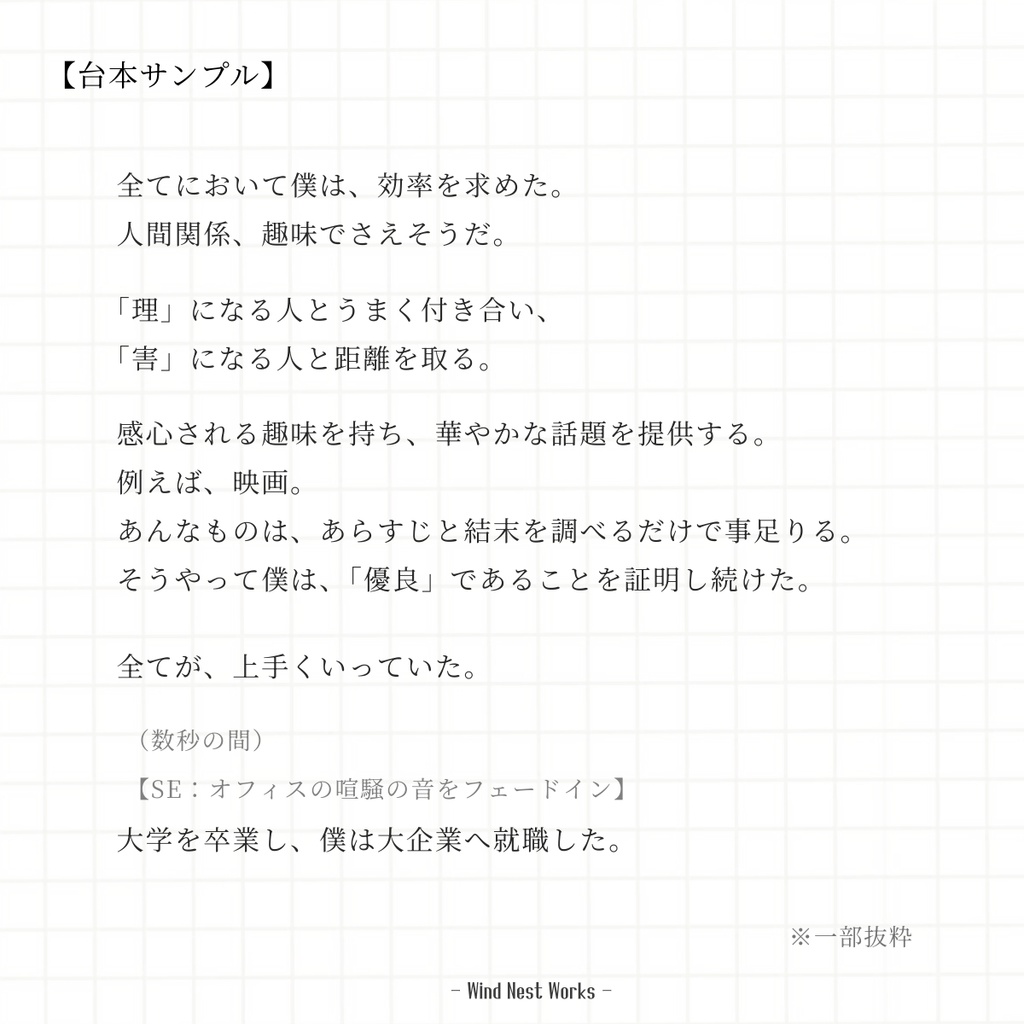 【台本サンプル】
全てにおいて僕は、効率を求めた。
人間関係、趣味でさえそうだ。
「理」になる人とうまく付き合い、
「害」になる人と距離を取る。
感心される趣味を持ち、華やかな話題を提供する。
例えば、映画。
あんなものは、あらすじと結末を調べるだけで事足りる。
そうやって僕は、「優良」であることを証明し続けた。
全てが、上手くいっていた。
（数秒の間）
【SE：オフィスの喧騒の音をフェードイン】
大学を卒業し、僕は大企業へ就職した。
※一部抜粋
– Wind Nest Works –